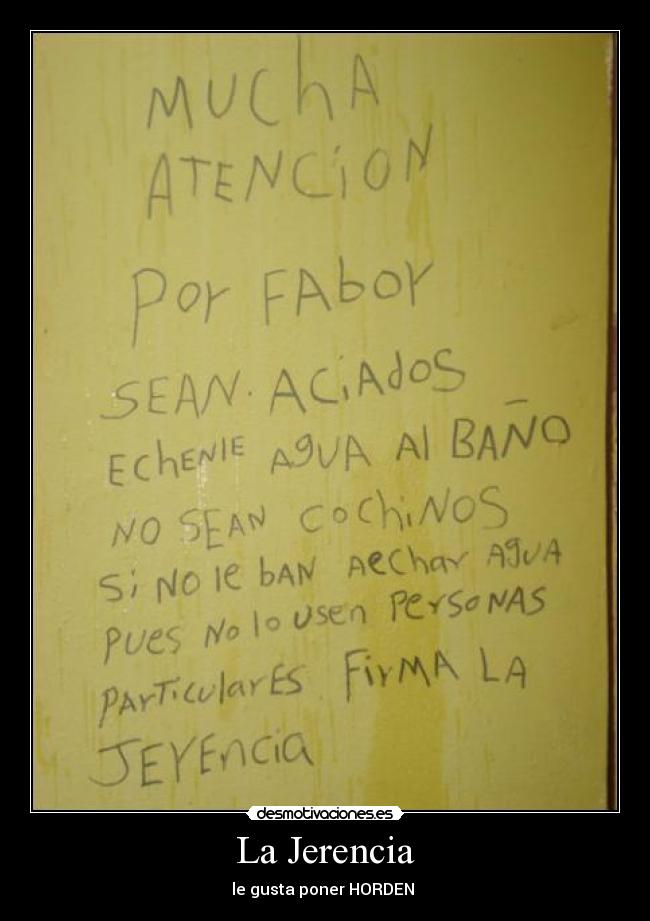 MUChA
ATENCiON
Por FAbor
SEAN. ACiAdOS
EchENlE AgUA Al BAÑO
NO SEAN CochiNOS
Si NO le bAN AeChar AgUA
PUes No lo Usen PerSoNAS
PArTicularES. FirMA LA
JEYEncia
desmotivaciones.es
La Jerencia
le gusta poner HORDEN